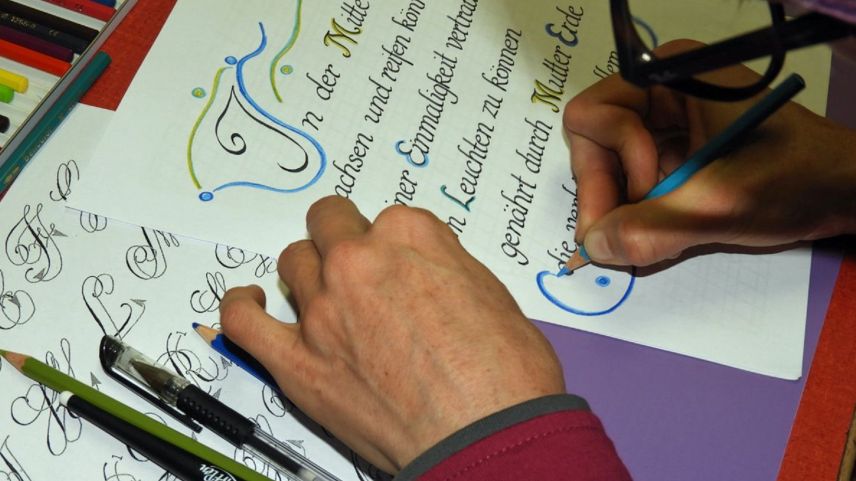 In der Mitte
achsen und reifen kön
iner Einmaligkeit vertrau
m Leuchten zu können
genährt durch Mutter Erde
die
llem